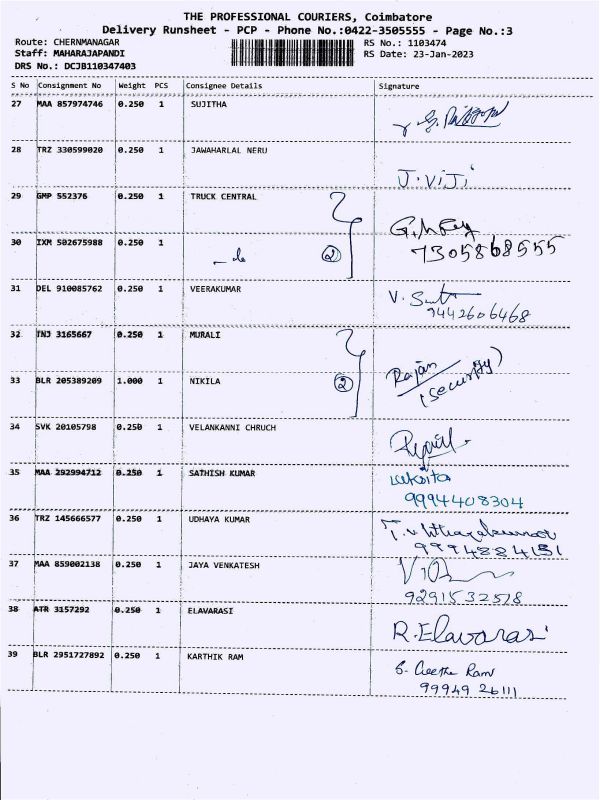 THE PROFESSIONAL COURIERS, Coimbatore
Delivery Runsheet - PCP - Phone No.:0422-3505555 - Page No.:3
Route: CHERNMANAGAR RS No.: 1103474
Staff: MAHARAJAPANDI RS Date: 23-Jan-2023
DRS No.: DCJB110347403
S No Consignment No Weight PCS Consignee Details Signature
27 MAA 857974746 0.250 1 SUJITHA
28 TRZ 330599020 0.250 1 JAWAHARLAL NERU
J. ViJi
29 GMP 552376 0.250 1 TRUCK CENTRAL
30 IXM 502675988 0.250 1 7305868555
2
31 DEL 910085762 0.250 1 VEERAKUMAR
9442606468
32 TNJ 3165667 0.250 1 MURALI
33 BLR 205389209 1.000 1 NIKILA Rajan
2 (Security)
34 SVK 20105798 0.250 1 VELANKANNI CHRUCH
35 MAA 292994712 0.250 1 SATHISH KUMAR
9994408304
36 TRZ 145666577 0.250 1 UDHAYA KUMAR
9994884151
37 MAA 859002138 0.250 1 JAYA VENKATESH
9291532518
38 ATR 3157292 0.250 1 ELAVARASI
R. Elavarasi
39 BLR 2951727892 0.250 1 KARTHIK RAM
99949 26111